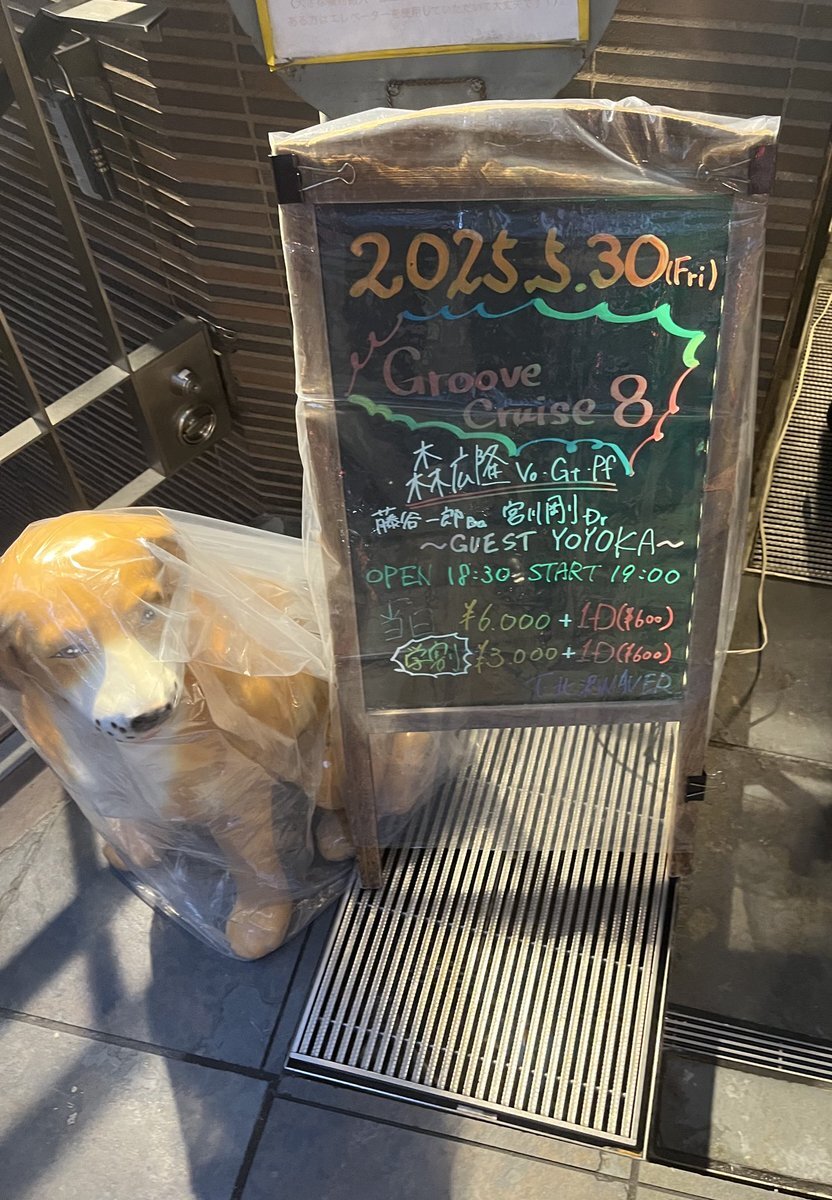 ある方はエレベーターを使用していただいて大丈夫です)。
2025.5.30(Fri)
Groove
Cruise 8
森広隆 Vo.Gt.Pf
藤谷一郎Ba 宮川剛Dr
~GUEST YOYOKA~
OPEN 18:30 START 19:00
当日 ¥6.000+1D(¥600)
学割 ¥3.000+1D(¥600)